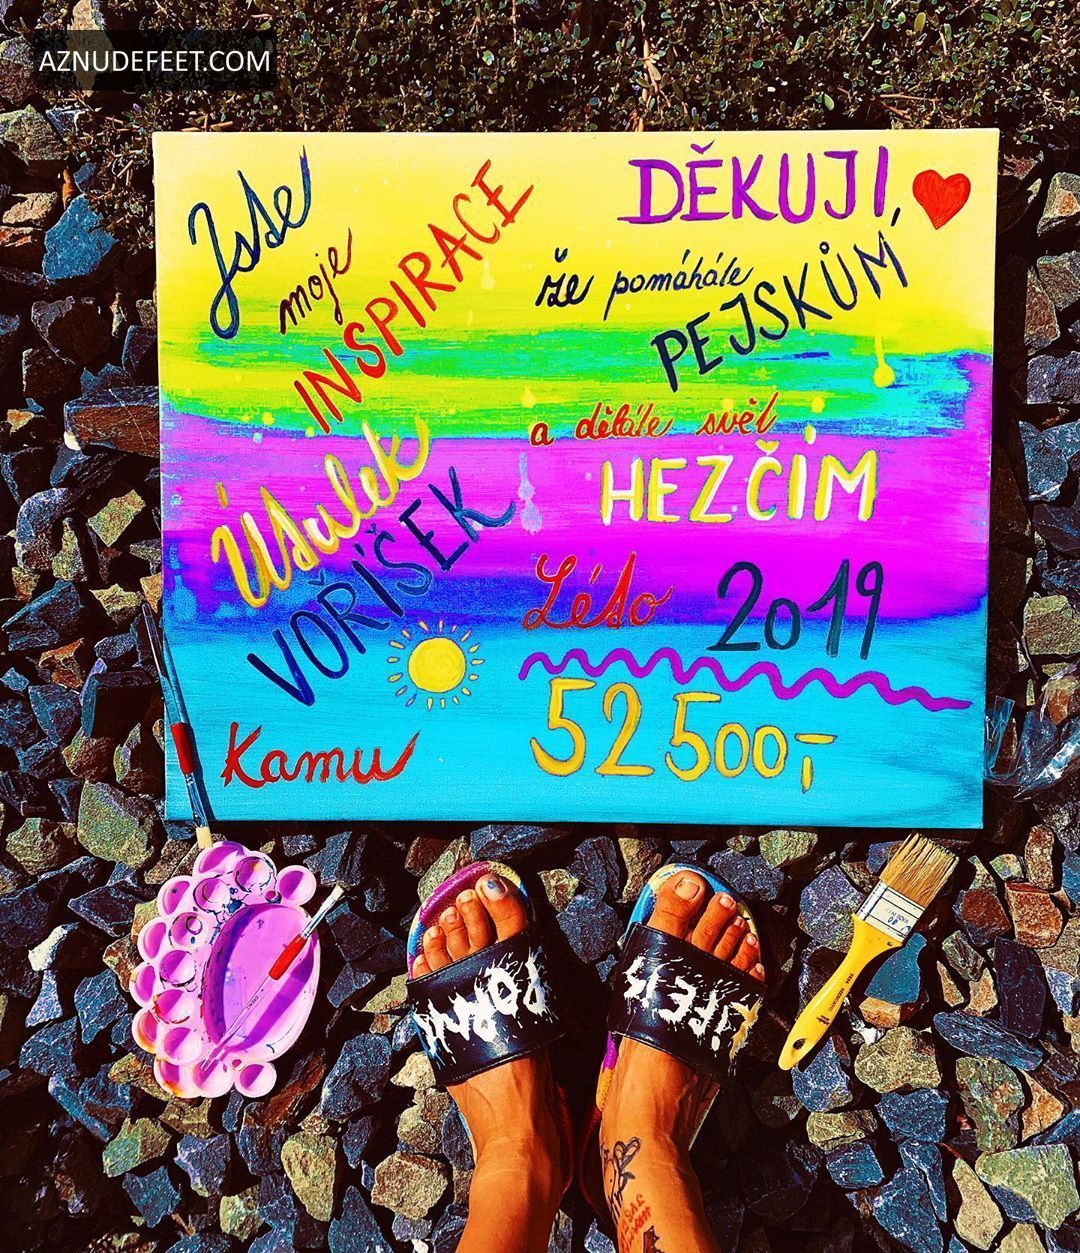 AZNUDEFEET.COM
Jste
moje
INSPIRACE
Útulek
VOŘÍŠEK
Kamu
DĚKUJI,
že pomáháte
PEJSKŮM
a děláte svět
HEZČÍM
Léto 2019
52 500,-
LIFE IS